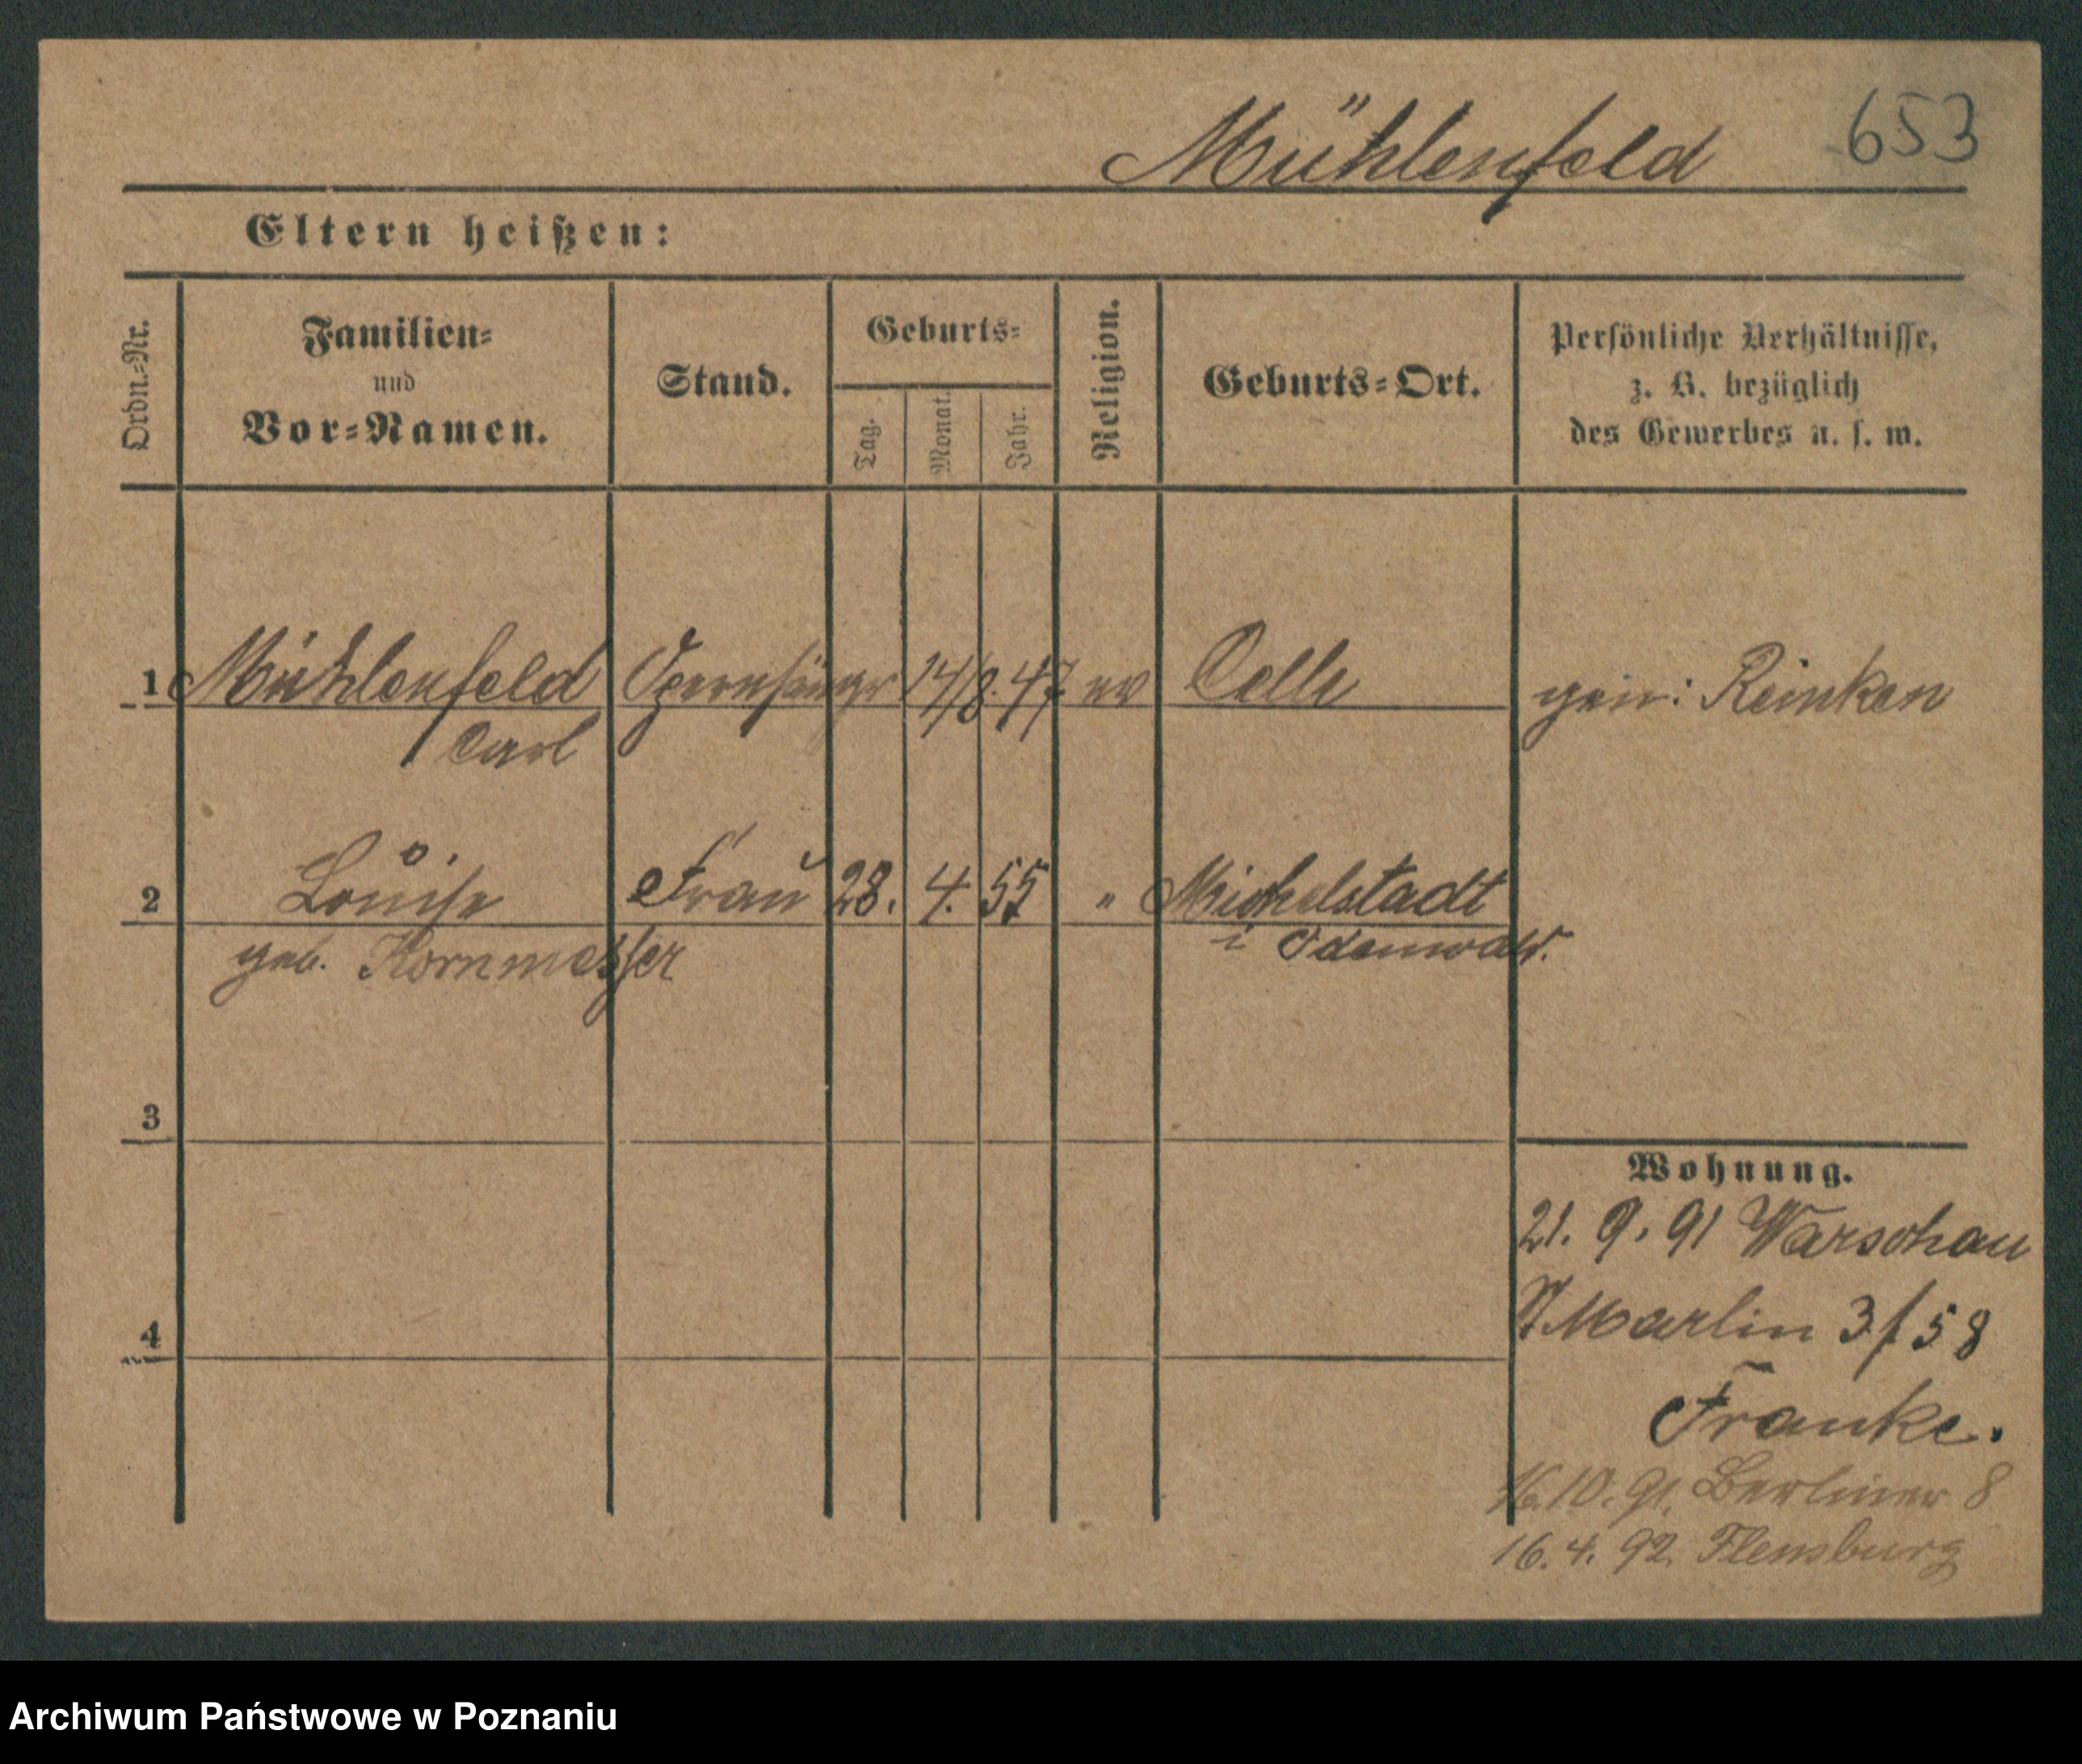 Mühlenfeld 653
Eltern heißen:
Ordn.-Nr.
Familien-
und
Vor-Namen.
Stand.
Geburts-
Tag.
Monat.
Jahr.
Religion.
Geburts-Ort.
Persönliche Verhältnisse,
z. B. bezüglich
des Gewerbes u. s. w.
1 Mühlenfeld Opernsänger 14/8. 47 ev Celle gen: Reinken
Carl
2 Louise Frau 28. 4. 55 " Michelstadt
geb. Kornmesser i Odenwald.
3
4
Wohnung.
21. 9. 91 Warschau
Martin 3/58
Franke.
16.10.91. Berliner 8
16.4.92. Flensburg
Archiwum Państwowe w Poznaniu